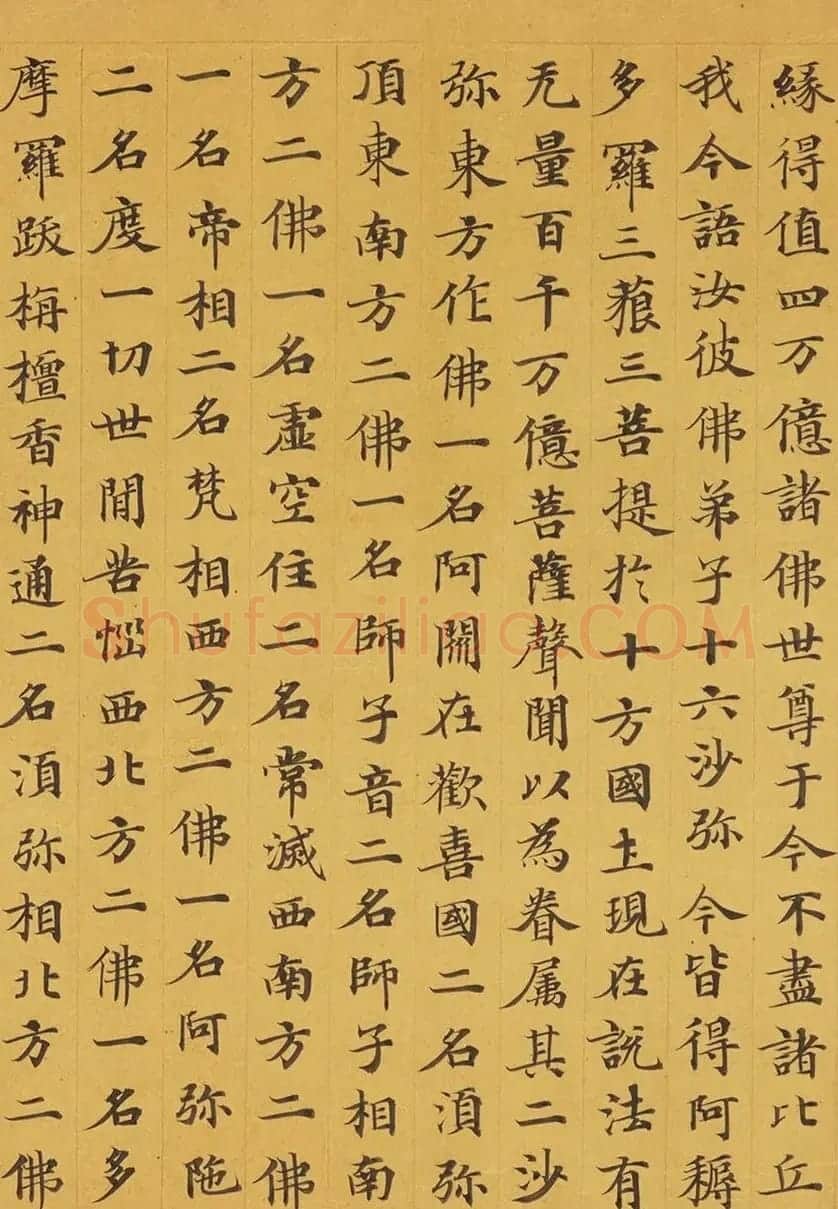 緣得值四万億諸佛世尊于今不盡諸比丘
我今語汝彼佛弟子十六沙弥今皆得阿耨
多羅三藐三菩提於十方國土現在說法有
无量百千万億菩薩聲聞以為眷属其二沙
弥東方作佛一名阿閦在歡喜國二名湏弥
頂東南方二佛一名師子音二名師子相南
方二佛一名虛空住二名常滅西南方二佛
一名帝相二名梵相西方二佛一名阿弥陁
二名度一切世間苦惱西北方二佛一名多
摩羅跋栴檀香神通二名湏弥相北方二佛
Shufaziliao.COM